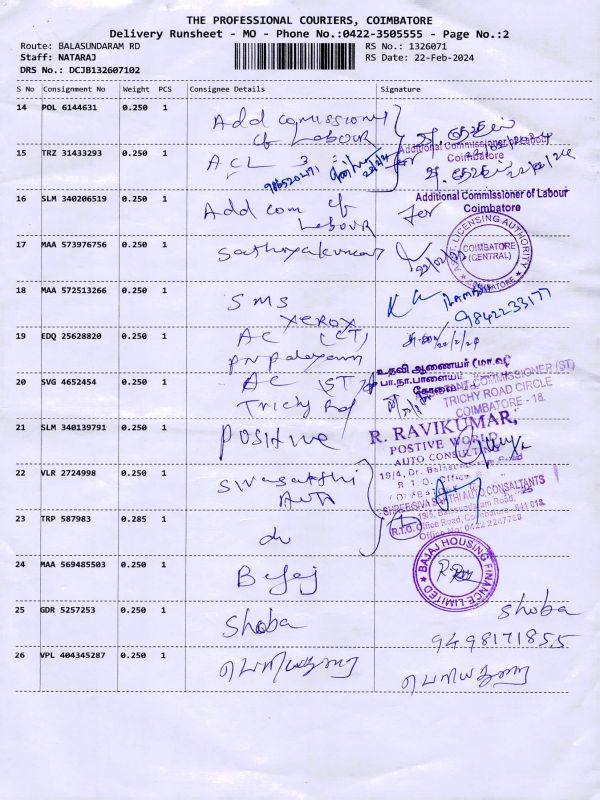 THE PROFESSIONAL COURIERS, COIMBATORE
Delivery Runsheet - MO - Phone No.:0422-3505555 - Page No.:2
Route: BALASUNDARAM RD
RS No.: 1326071
Staff: NATARAJ
RS Date: 22-Feb-2024
DRS No.: DCJB132607102
S No Consignment No Weight PCS Consignee Details Signature
14 POL 6144631 0.250 1 Add comissioner
of Labour
Additional Commissioner of Labour
Coimbatore
15 TRZ 31433293 0.250 1 ACL 3 for
16 SLM 340206519 0.250 1 Add com of
Labour for
Additional Commissioner of Labour
Coimbatore
17 MAA 573976756 0.250 1 Sathiyakumar
LICENSING AUTHORITY
COIMBATORE
(CENTRAL)
18 MAA 572513266 0.250 1 SMS
Xerox
9842233177
19 EDQ 25628820 0.250 1 AC (CT)
PN palayam
உதவி ஆணையர் (மா.வ)
பா.நா.பாளையம்
கோவை
20 SVG 4652454 0.250 1 AC (ST)
Trichy Rd
COMMISSIONER (ST)
TRICHY ROAD CIRCLE
COIMBATORE - 18
21 SLM 340139791 0.250 1 Positive
R. RAVIKUMAR,
POSTIVE WORLD
AUTO CONSULTING
R.T.O. Office
22 VLR 2724998 0.250 1 Sivasakthi
Auto
SHREE SIVA SAKTHI AUTO CONSULTANTS
19/5, Balasundaram Road,
R.T.O. Office Road, Coimbatore - 641 018.
Office No: 0422 2247768
23 TRP 587983 0.285 1 do
24 MAA 569485503 0.250 1 Bajaj
BAJAJ HOUSING FINANCE LIMITED
25 GDR 5257253 0.250 1 Shoba
Shoba
9498171855
26 VPL 404345287 0.250 1 பெரியதுரை
பெரியதுரை